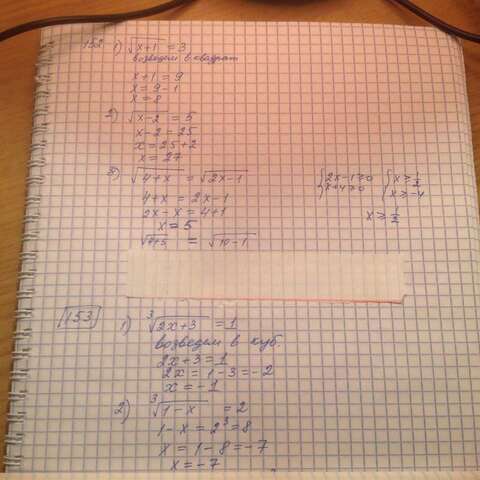 152 1) √x+1 = 3
возведем в квадрат
x+1 = 9
x = 9-1
x = 8
2) √x-2 = 5
x-2 = 25
x = 25+2
x = 27
3) √4+x = √2x-1
4+x = 2x-1
2x-x = 4+1
x = 5
√4+5 = √10-1
{2x-1≥0 {x ≥ 1/2
x+4≥0 x ≥ -4
x ≥ 1/2
153 1) ³√2x+3 = 1
возведем в куб.
2x+3 = 1
2x = 1-3 = -2
x = -1
2) ³√1-x = 2
1-x = 2³ = 8
x = 1-8 = -7
x = -7